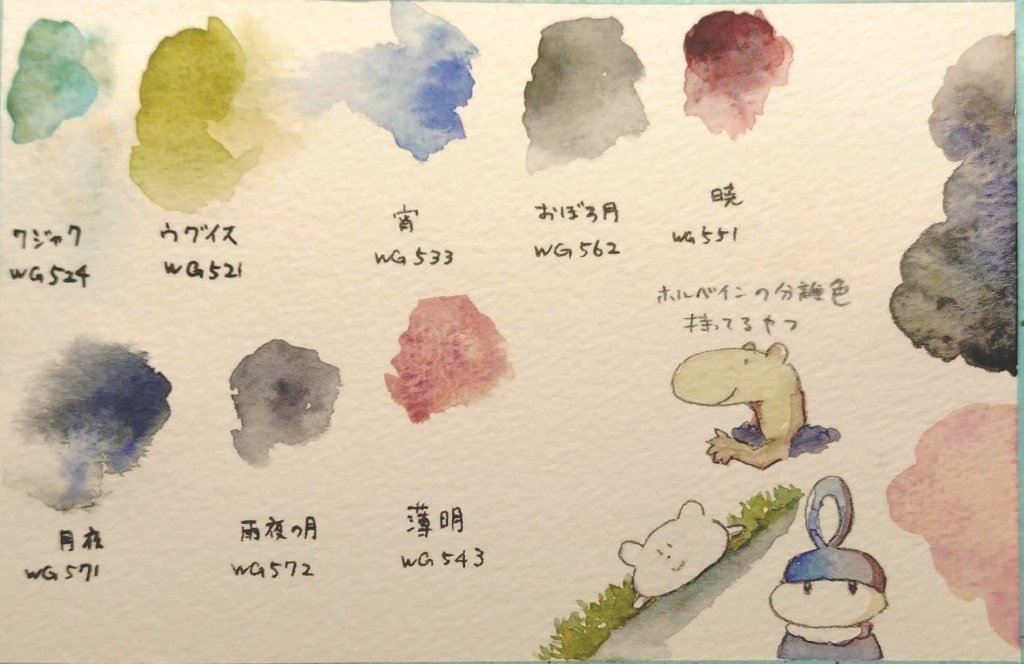 クジャク
WG524
ウグイス
WG521
宵
WG533
おぼろ月
WG562
暁
WG551
ホルベインの分離色
持ってるやつ
月夜
WG571
雨夜の月
WG572
薄明
WG543